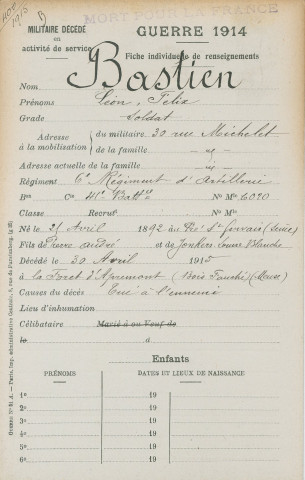 MORT POUR LA FRANCE
B
MILITAIRE DÉCÉDÉ
en
activité de service
GUERRE 1914
Fiche individuelle de renseignements
Nom Bastien
Prénoms Léon, Félix
Grade Soldat
Adresse à la mobilisation du militaire 30 rue Michelet
de la famille
Adresse actuelle de la famille
Régiment 6e Régiment d'Artillerie
Bon Cie 41e Battie No Mle 6020
Classe Recrutt No Mle
Né le 25 Avril 1892 à Pré St Gervais (Seine)
Fils de Pierre André et de Louise Blanche
Décédé le 30 Avril 1915
à la Forêt d'Apremont (Bois Fouché) (Meuse)
Causes du décès Tué à l'ennemi
Lieu d'inhumation
Célibataire Marié à ou Veuf de
le à
Enfants
PRÉNOMS DATES ET LIEUX DE NAISSANCE
1o 19
2o 19
3o 19
4o 19
5o 19
6o 19